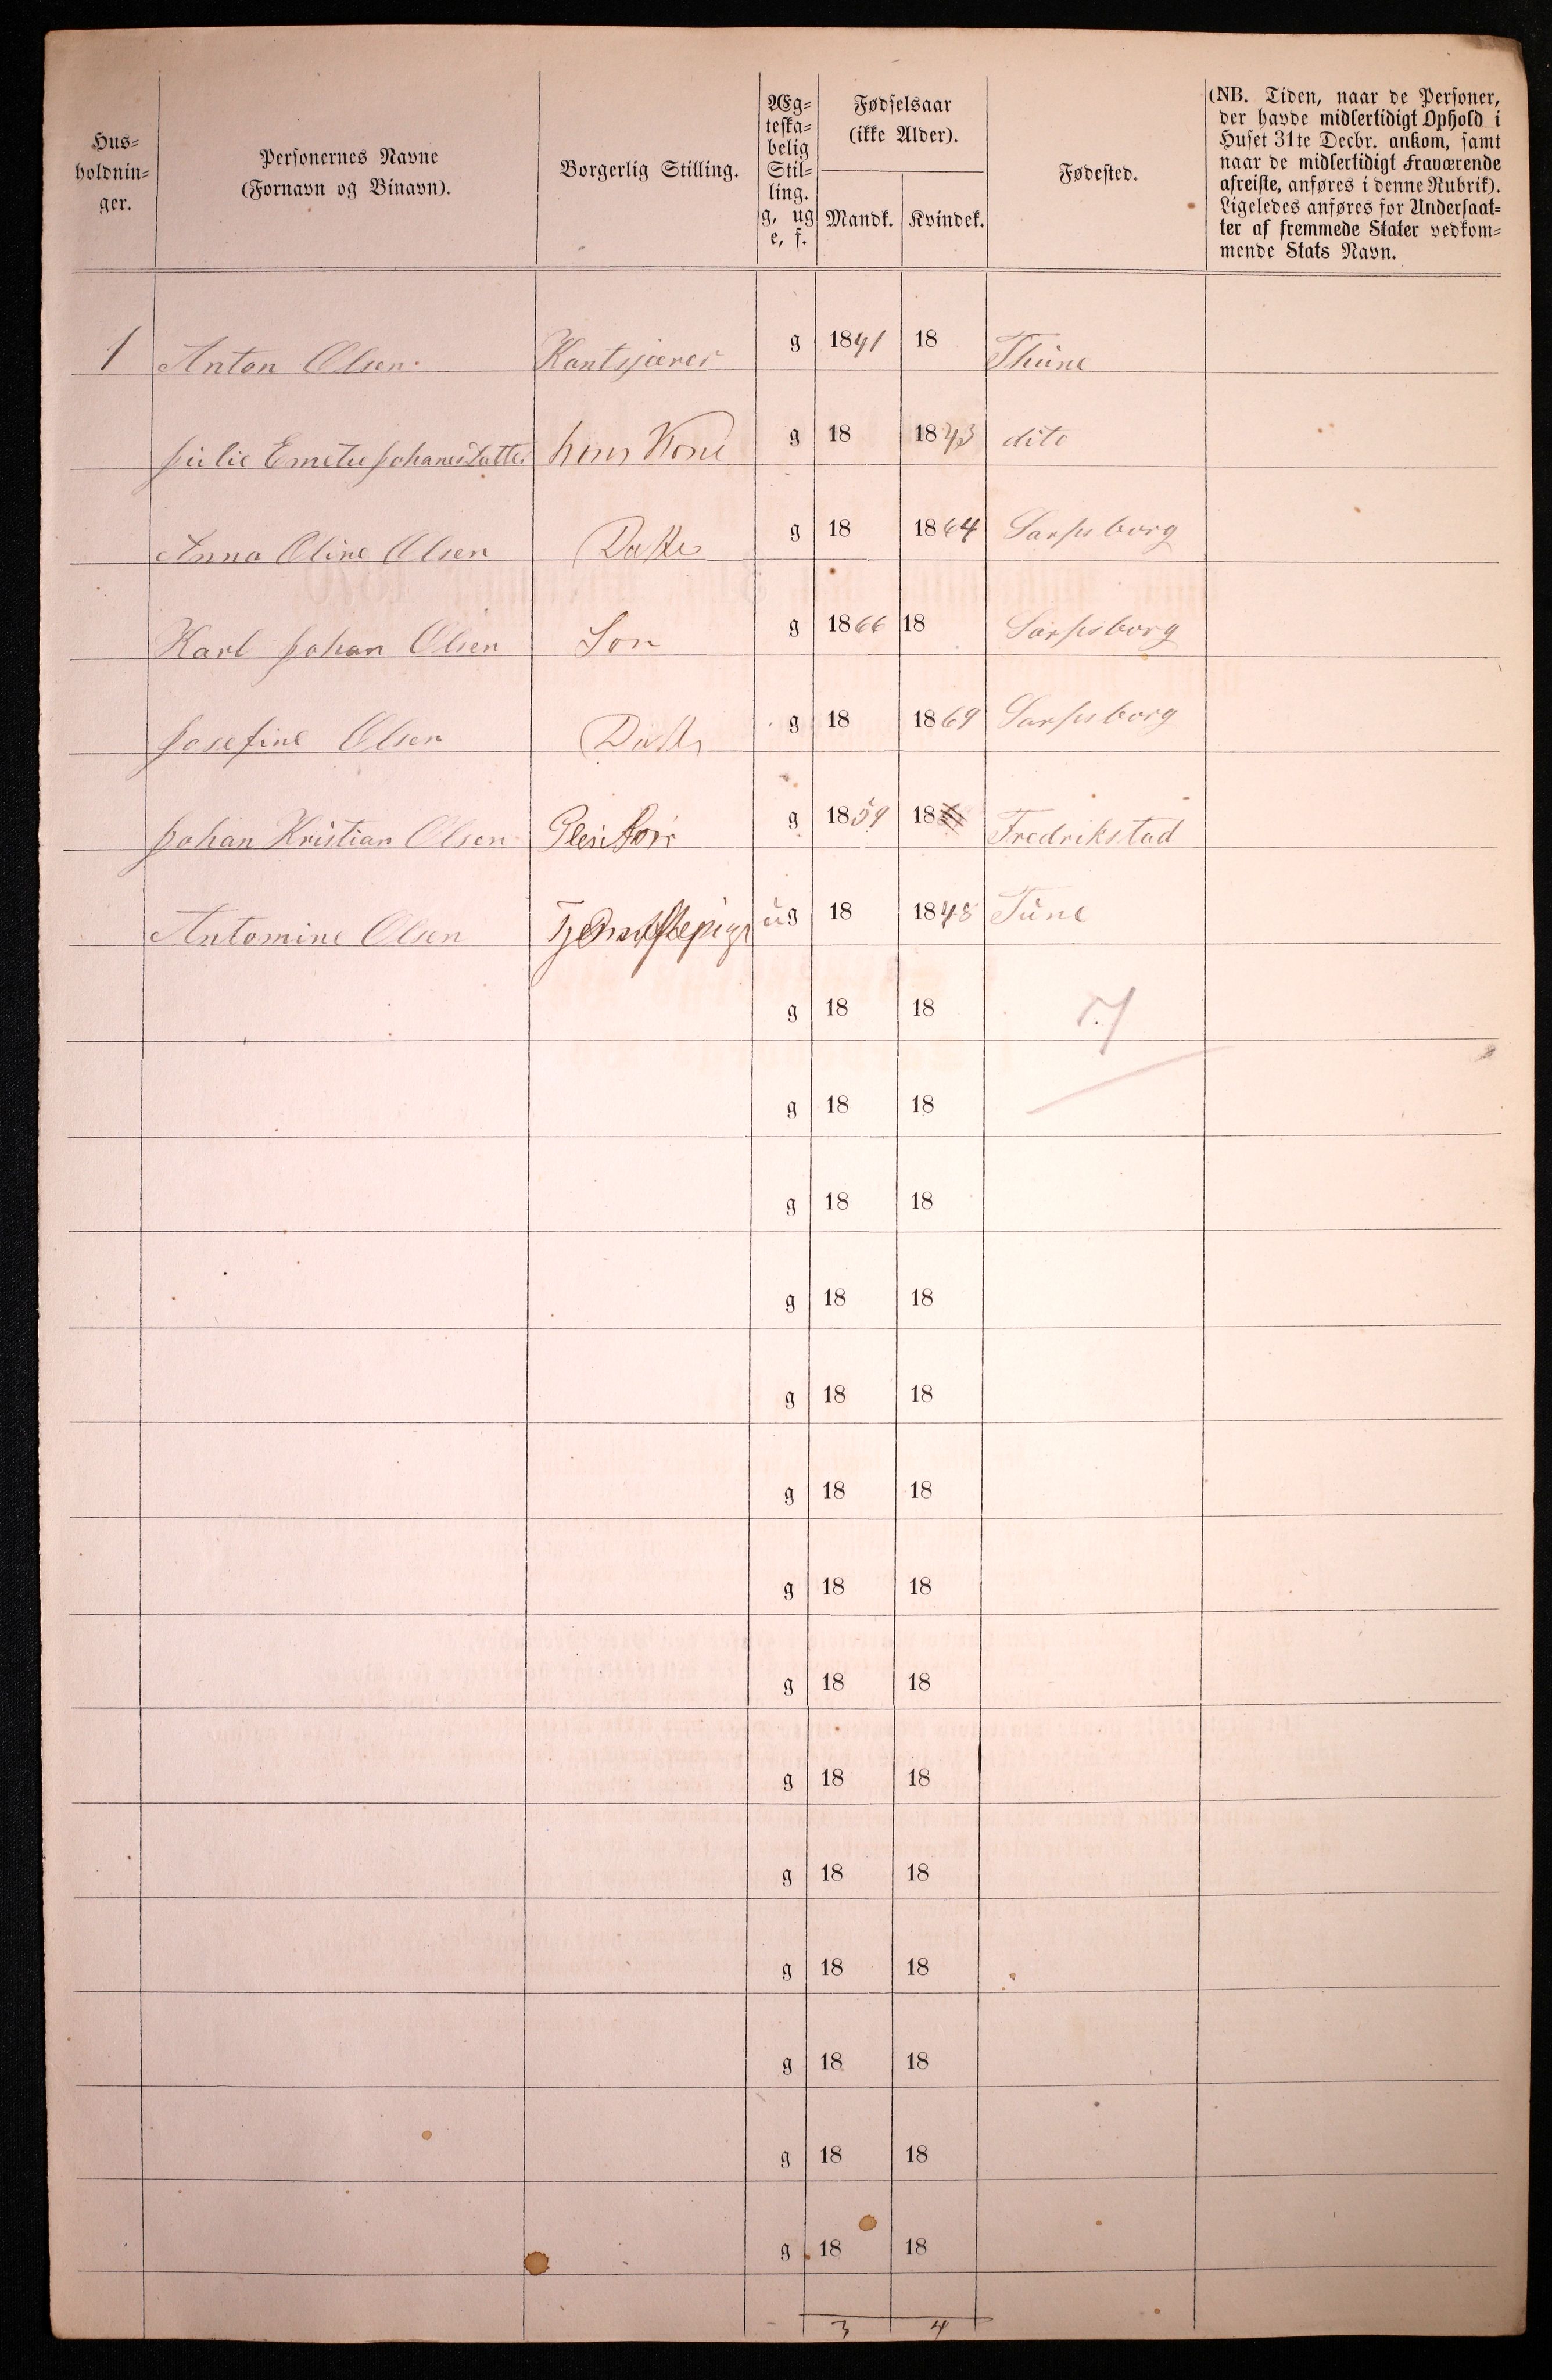 Hus-
holdnin-
ger.
Personernes Navne
(Fornavn og Binavn).
Borgerlig Stilling.
Æg-
teska-
belig
Stil-
ling.
g, ug
e, f.
Fødselsaar
(ikke Alder).
Mandk. Kvindek.
Fødested.
(NB. Tiden, naar de Personer,
der havde midlertidigt Ophold i
Huset 31te Decbr. ankom, samt
naar de midlertidigt Fraværende
afreiste, anføres i denne Rubrik).
Ligeledes anføres for Undersaat-
ter af fremmede Stater vedkom-
mende Stats Navn.
1 Anton Olsen Kantsjører g 1841 18 Thüne
Julie Johanesdatter hans Kone g 18 1843 dito
Anna Oline Olsen Datter g 18 1864 Sarpsborg
Karl Johan Olsen Son g 1866 18 Sarpsborg
Josefine Olsen Datter g 18 1869 Sarpsborg
Johan Kristian Olsen Pleiesøn g 1859 18 Fredrikstad
Antomine Olsen Tjenestepige üg 18 1848 Tüne
g 18 18 7
g 18 18
g 18 18
g 18 18
g 18 18
g 18 18
g 18 18
g 18 18
g 18 18
g 18 18
g 18 18
g 18 18
g 18 18
g 18 18
3 4